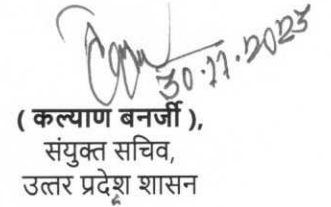 30.11.2023
( कल्याण बनर्जी ),
संयुक्त सचिव,
उत्तर प्रदेश शासन